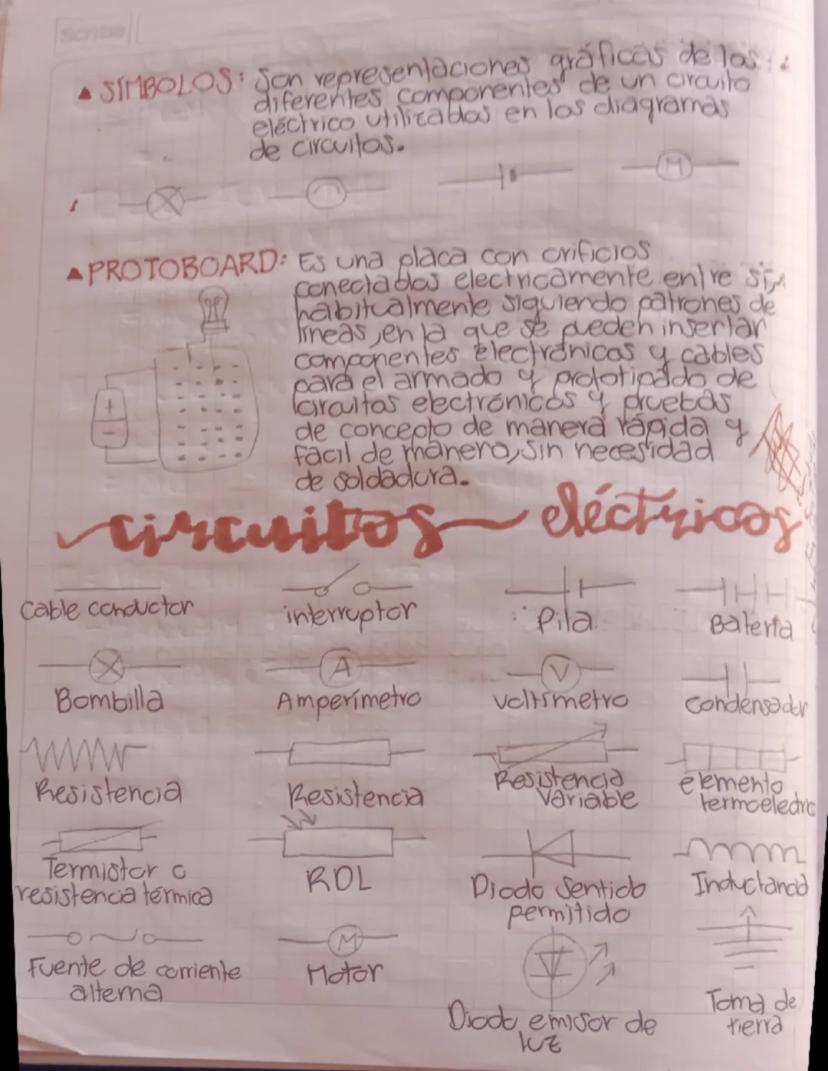 Scribe
▲ SÍMBOLOS: Son representaciones gráficas de los
diferentes componentes de un circuito
eléctrico utilizadas en los diagramas
de circuitos.
M
▲ PROTOBOARD: Es una placa con orificios
conectados electricamente entre si,
habitualmente siguiendo patrones de
lineas, en la que se pueden insertar
componentes electrónicos y cables
para el armado y prototipado de
circuitos electrónicos y pruebas
de concepto de manera rápida y
fácil de manera, sin necesidad
de soldadura.
+
-
circuitos eléctricos
Cable conductor interruptor Pila Batería
A V
Bombilla Amperímetro voltímetro Condensador
Resistencia Resistencia Resistencia elemento
Variable termoelectrc
Termistor o RDL Diodo Sentido Inductancia
resistencia térmica permitido
M
Fuente de corriente Motor
alterna
Diodo emisor de Toma de
luz tierra